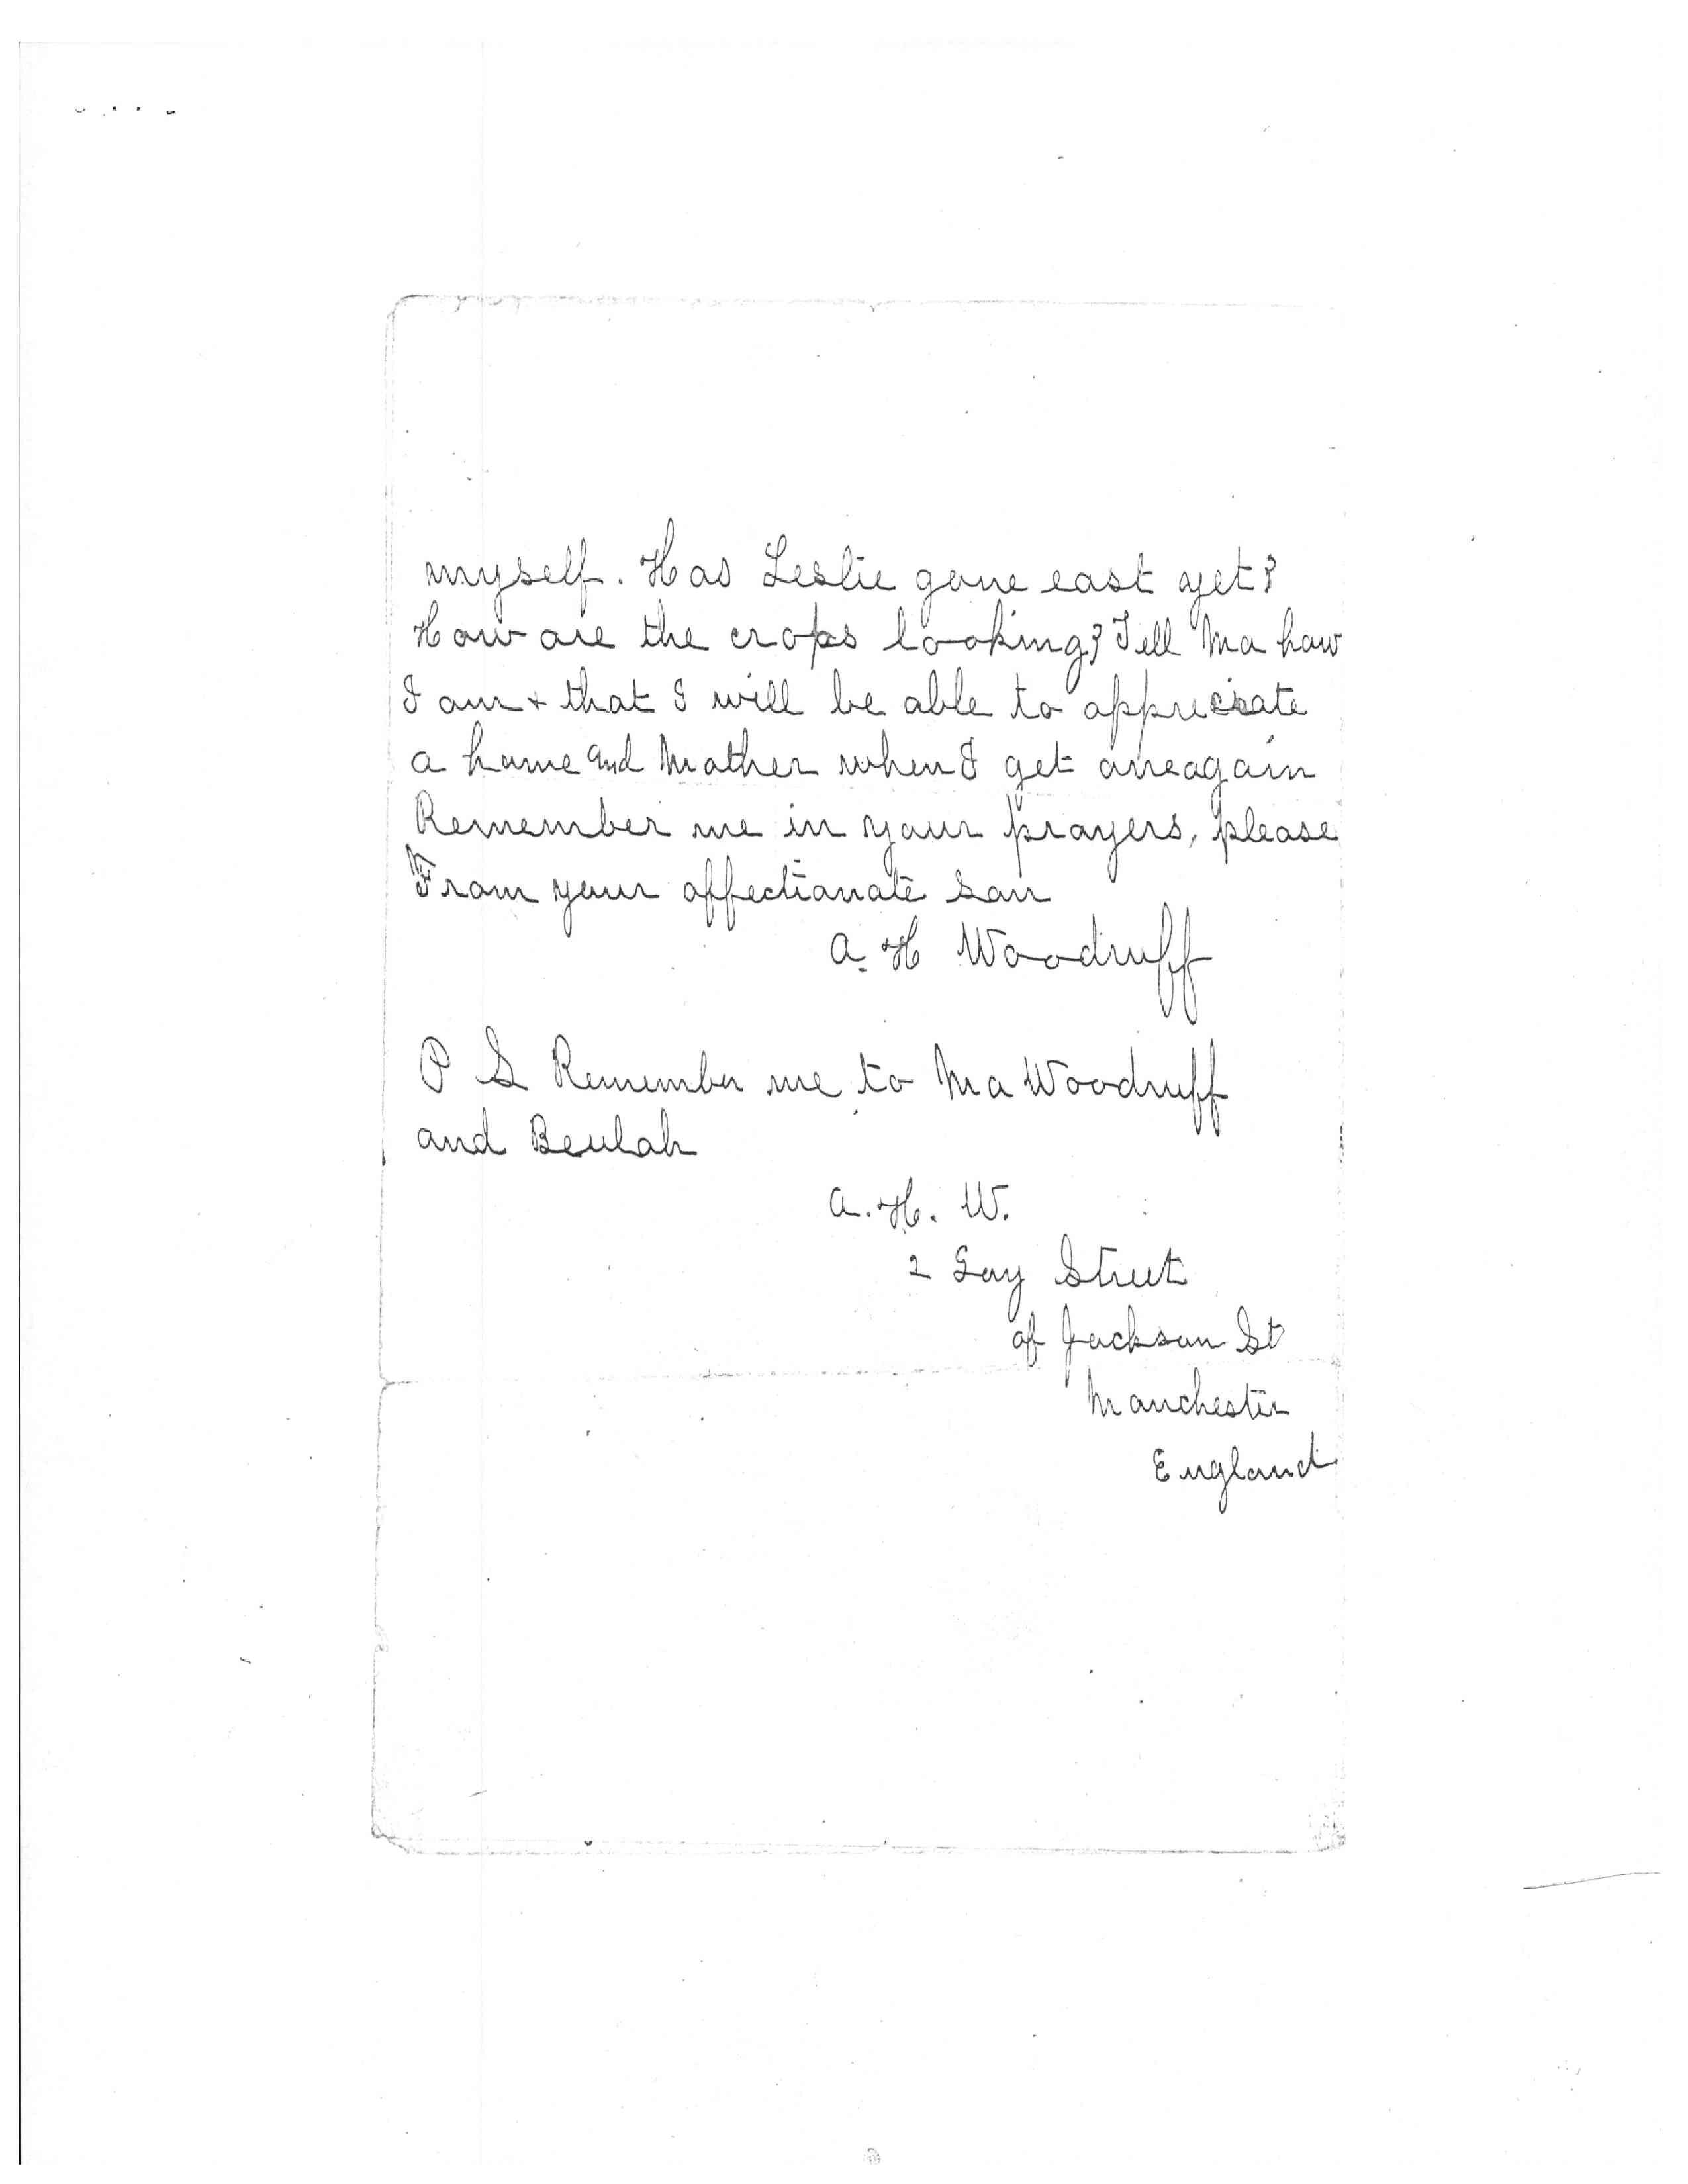 myself. Has Leslie gone east yet?
How are the crops looking? Tell Ma how
I am + that I will be able to appreciate
a home and Mother when I get one again
Remember me in your prayers, please
From your affectionate son
A. H Woodruff
P S Remember me to Ma Woodruff
and Beulah
A. H. W.
2 Gay Street
of Jackson St
Manchester
England